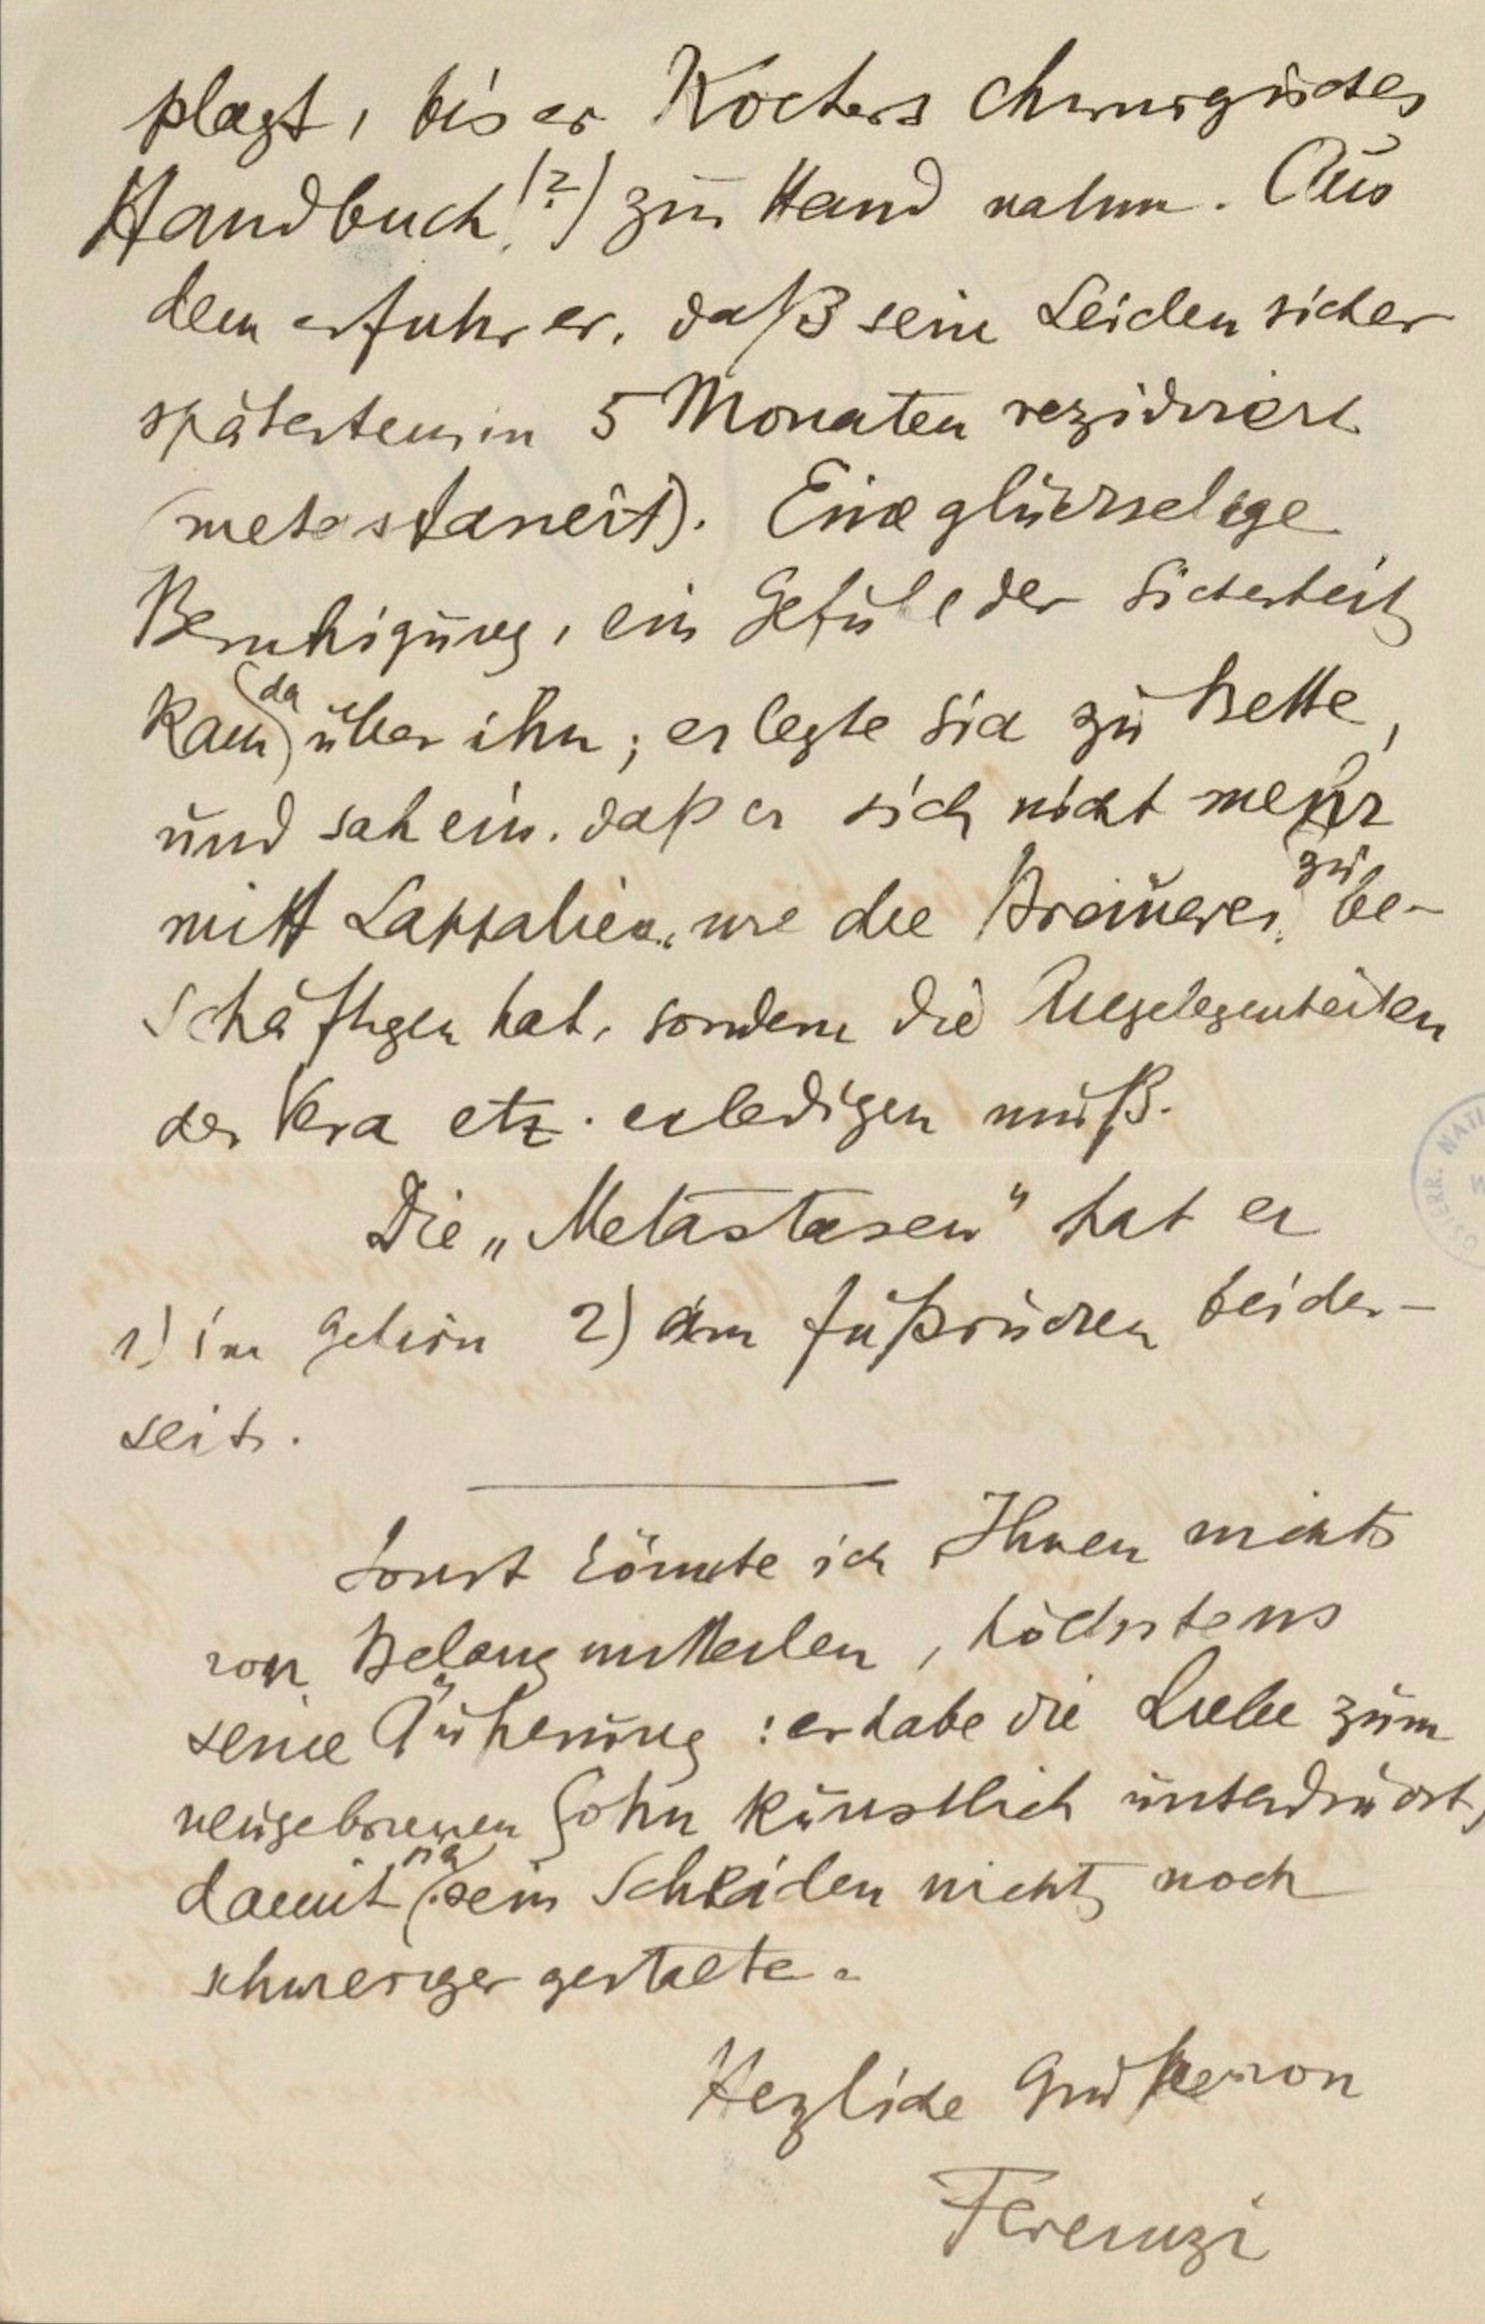 plagt, bis er Kochers chirurgisches
Handbuch (?) zur Hand nahm. Aus
dem erfuhr er, daß sein Leiden sicher
spätestens in 5 Monaten rezidiviert
(metastasiert). Eine glückselige
Beruhigung, ein Gefühl der Sicherheit
kam da über ihn; er legte sich zu Bette,
und sah ein, daß er sich nicht mehr
mit Lappalien, wie die Brauerei, zu be-
schäftigen hat, sondern die Angelegenheiten
der Vera etz. erledigen muß.
Die „Metastasen" hat er
1) im Gehirn 2) am Fußrücken beider-
seits.
Sonst könnte ich Ihnen nichts
von Belang mitteilen, höchstens
seine Äußerung: er habe die Liebe zum
neugeborenen Sohn künstlich unterdrückt,
damit sein Scheiden nicht noch
schwieriger gestalte.
Herzliche Grüße von
Ferenczi
ÖSTERR. NATI